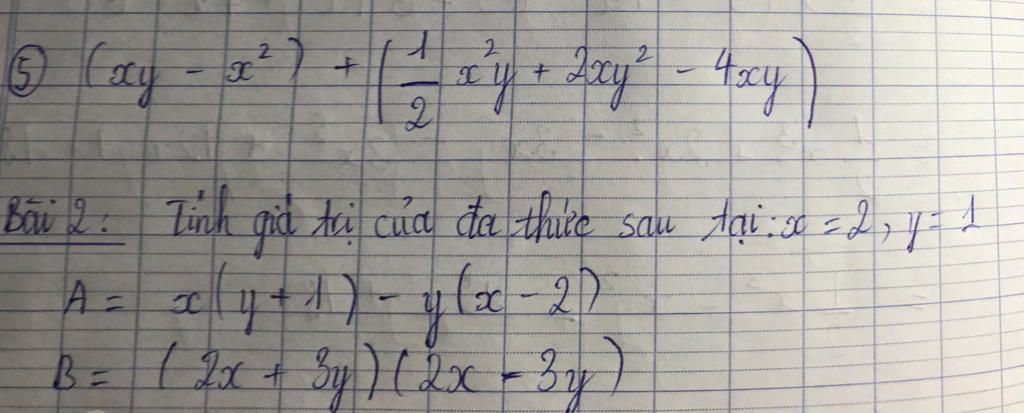 ⑤ (xy - x²) + (1/2 x²y + 2xy² - 4xy)
Bài 2: Tính giá trị của đa thức sau tại: x = 2, y = 1
A = x(y + 1) - y(x - 2)
B = (2x + 3y)(2x - 3y)